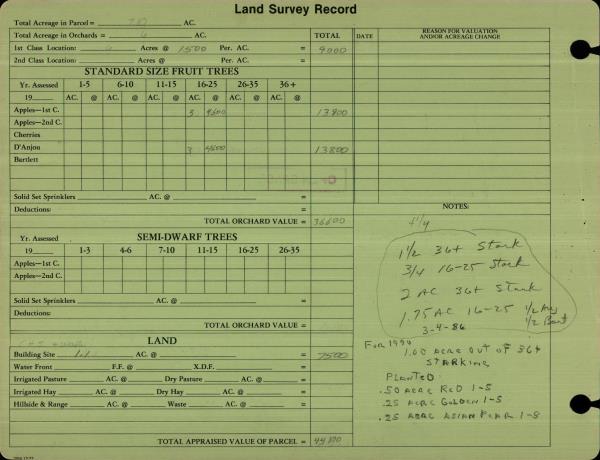 Land Survey Record
Total Acreage in Parcel = AC.
Total Acreage in Orchards = 6 AC. TOTAL DATE REASON FOR VALUATION AND/OR ACREAGE CHANGE
1st Class Location: 6 Acres @ 1500 Per. AC. = 9000
2nd Class Location: Acres @ Per. AC. =
STANDARD SIZE FRUIT TREES
Yr. Assessed 1-5 6-10 11-15 16-25 26-35 36+
19 AC. @ AC. @ AC. @ AC. @ AC. @ AC. @
Apples—1st C. 3 4600 13800
Apples—2nd C.
Cherries
D'Anjou 3 4600 13800
Bartlett
Solid Set Sprinklers AC. @ =
Deductions: =
TOTAL ORCHARD VALUE = 36600
SEMI-DWARF TREES
Yr. Assessed
19 1-3 4-6 7-10 11-15 16-25 26-35
Apples—1st C.
Apples—2nd C.
Solid Set Sprinklers AC. @ =
Deductions:
TOTAL ORCHARD VALUE =
LAND
Building Site AC. @ = 7500
Water Front F.F. @ X.D.F. =
Irrigated Pasture AC. @ Dry Pasture AC. @ =
Irrigated Hay AC. @ Dry Hay AC. @ =
Hillside & Range AC. @ Waste AC. @ =
TOTAL APPRAISED VALUE OF PARCEL =
NOTES:
1 1/2 36+ Stark
3/4 16-25 Stark
2 AC 36+ Stark
1.75 AC 16-25 1/2 Anj
1/2 Bart
3-4-86
For 1994
1.00 ACRE OUT OF 36+
STARKING
PLANTED:
.50 ACRE RED 1-5
.25 ACRE GOLDEN 1-5
.25 ACRE ASIAN PEAR 1-5